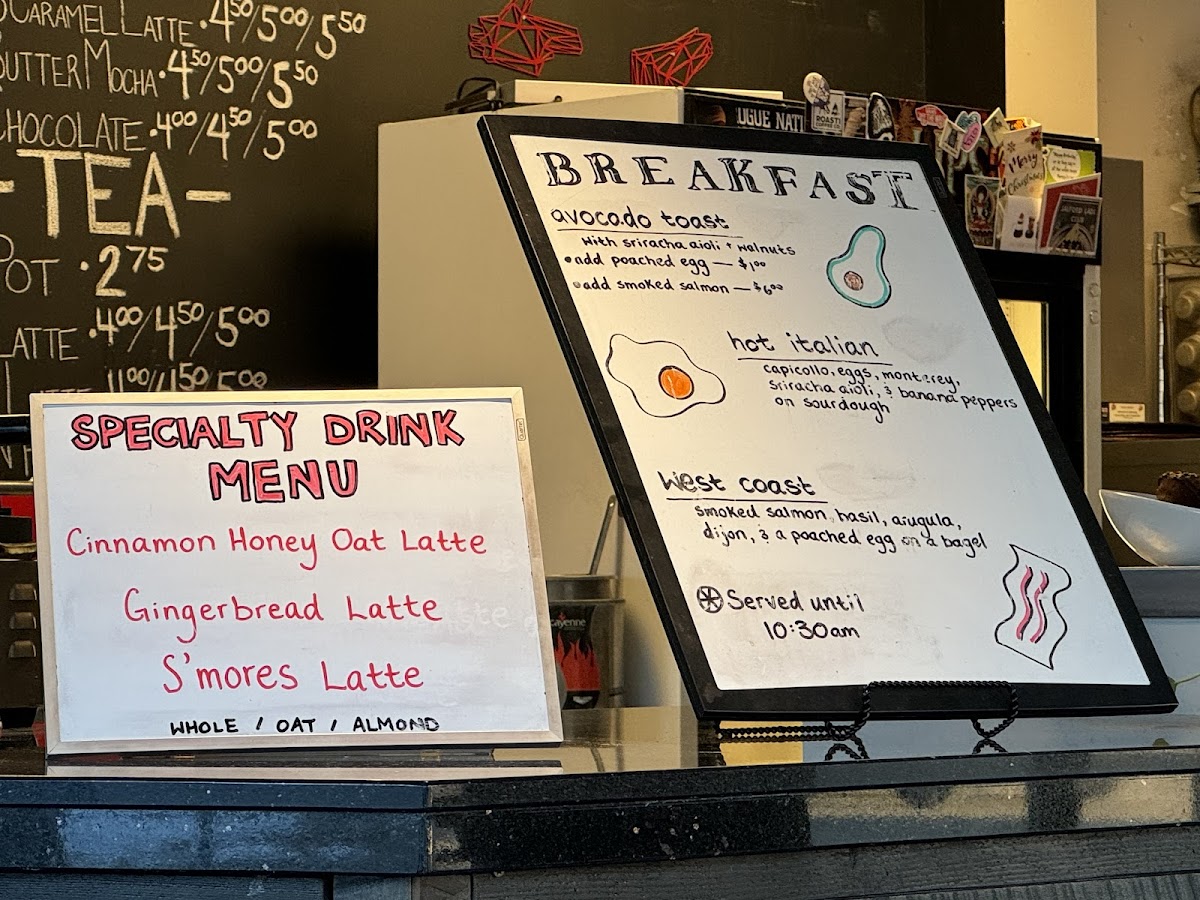 CARAMEL LATTE · 4⁵⁰/5⁰⁰/5⁵⁰
BUTTER MOCHA · 4⁵⁰/5⁰⁰/5⁵⁰
CHOCOLATE · 4⁰⁰/4⁵⁰/5⁰⁰
- TEA -
POT · 2⁷⁵
LATTE · 4⁰⁰/4⁵⁰/5⁰⁰
SPECIALTY DRINK
MENU
Cinnamon Honey Oat Latte
Gingerbread Latte
S'mores Latte
WHOLE / OAT / ALMOND
BREAKFAST
avocado toast
with sriracha aioli + walnuts
• add poached egg — $1⁰⁰
• add smoked salmon — $6⁰⁰
hot italian
capicollo, eggs, monterey,
sriracha aioli, & banana peppers
on sourdough
west coast
smoked salmon, basil, arugula,
dijon, & a poached egg on a bagel
Served until
10:30am
cayenne
ROAST!
Merry
Christmas